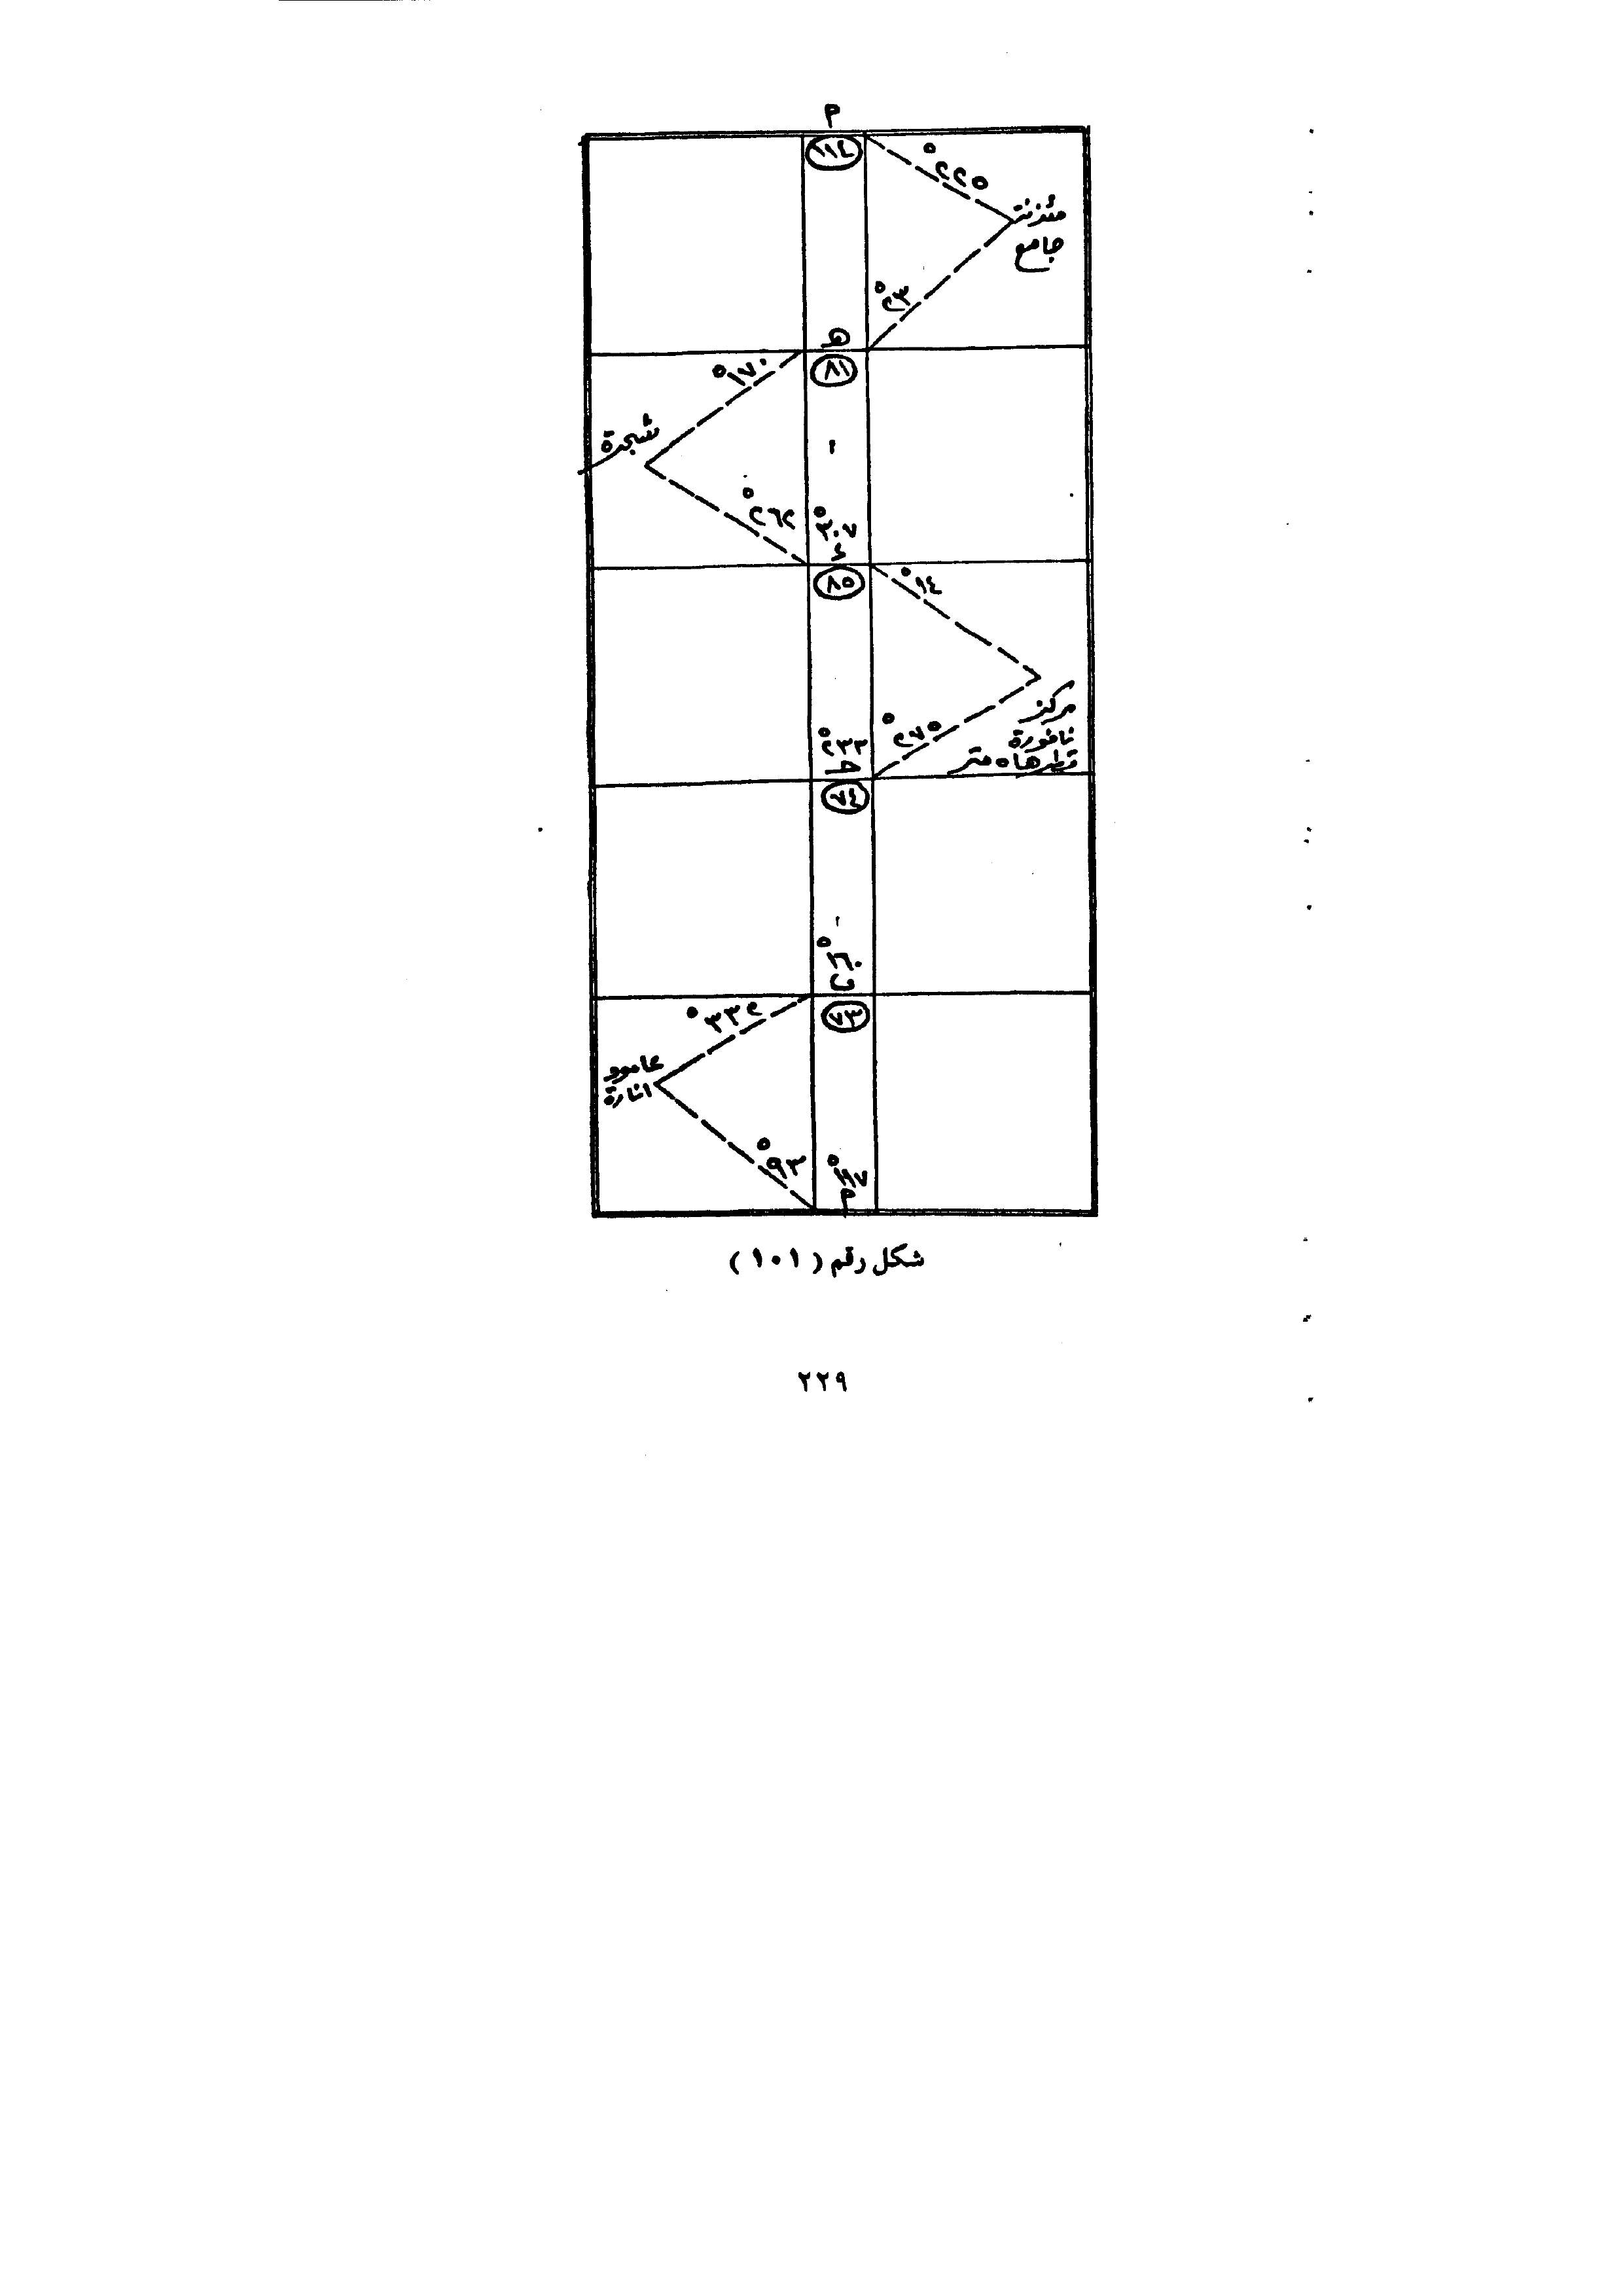 م
١١٤
٢٢٥°
مئذنة
جامع
٢٣°
٨١
١٧٠°
شجرة
٢٦٢°
٣٠٧°
٨٥
٩٤°
مركز
نافورة
قطرها ٥ متر
٢٧٥°
٢٣٣°
٧٤
٧٣
٣٣٢°
عامود
انارة
٩٣°
شكل رقم (١٠١)
٢٢٩